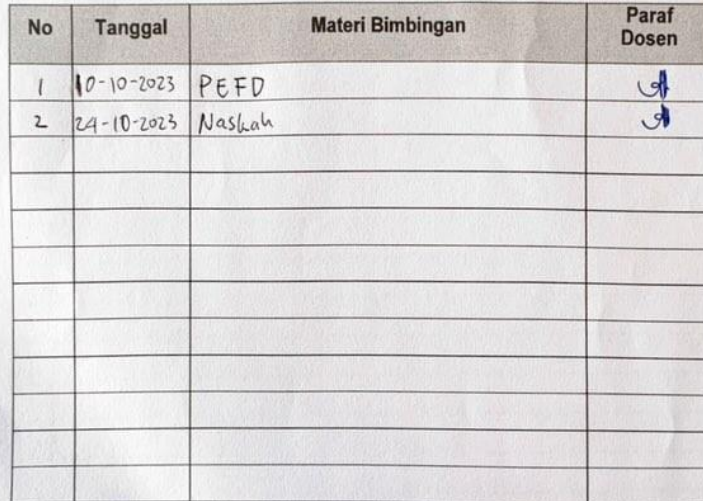 No Tanggal Materi Bimbingan Paraf Dosen
1 10-10-2023 PEFD
2 24-10-2023 Naskah